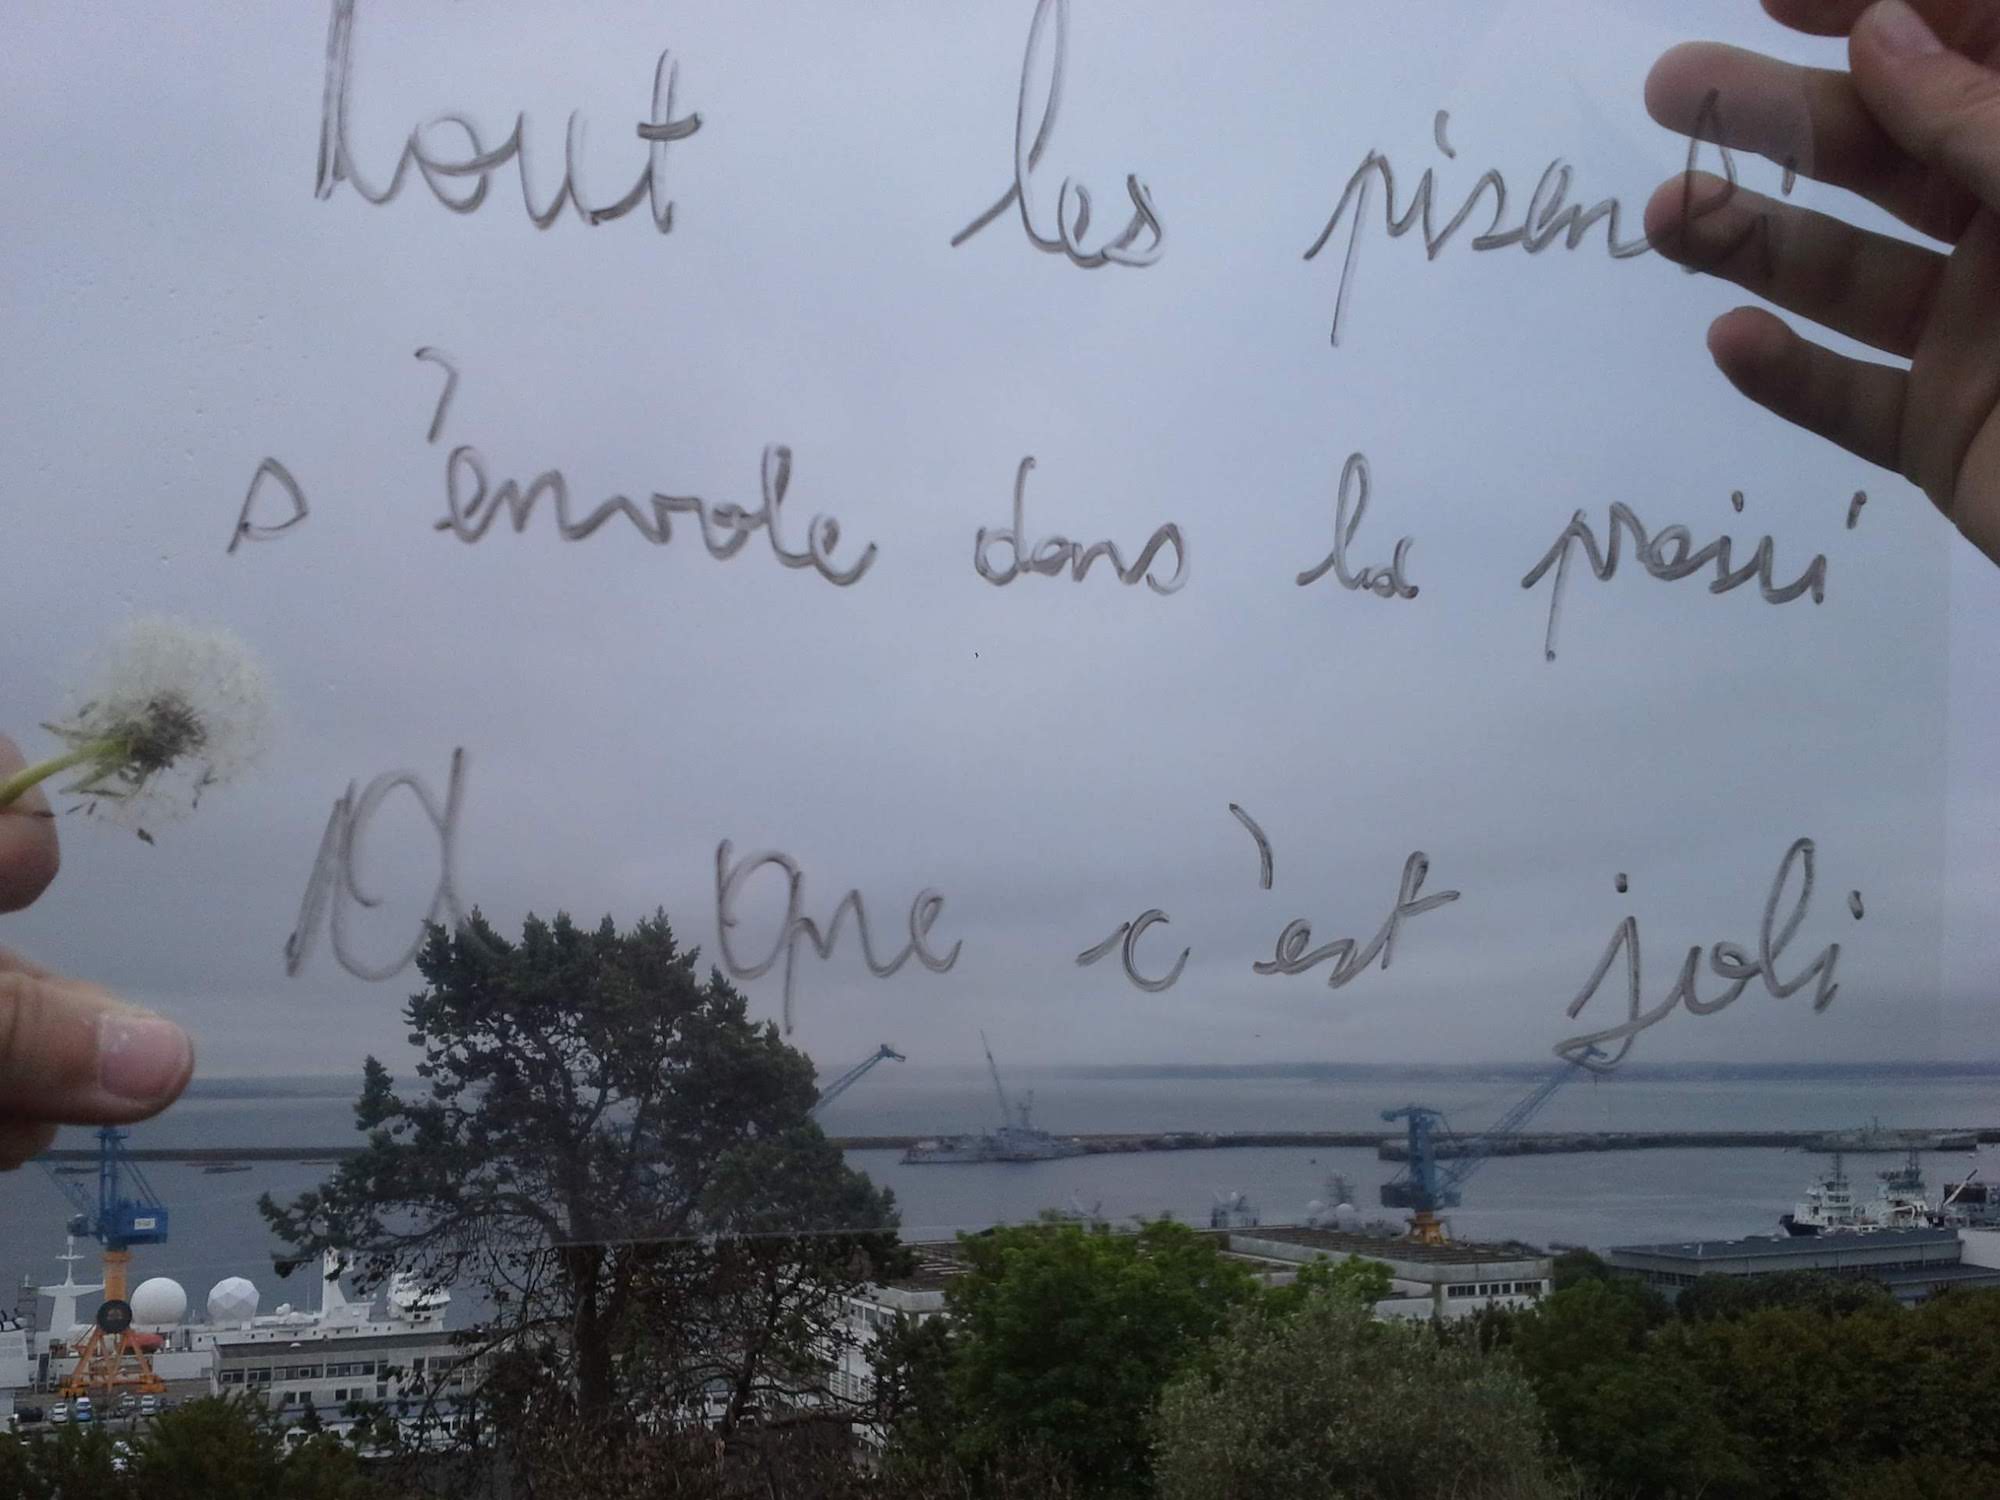 tout les pisenli
s'envole dans la prairi
O que c'est joli